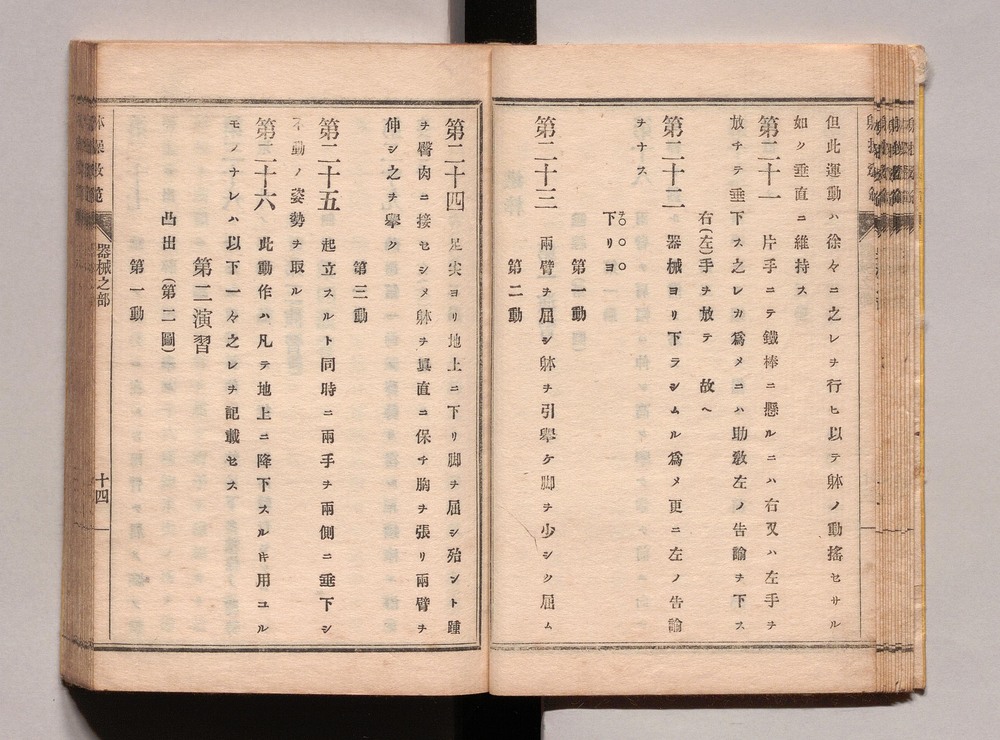 但此運動ハ徐々ニ之レヲ行ヒ以テ躰ノ動搖セサル
如ク垂直ニ維持ス
第二十一 片手ニテ鐵棒ニ懸ルニハ右又ハ左手ヲ
放チテ垂下ス之レカ爲メニハ助敎左ノ告諭ヲ下ス
右(左)手ヲ放テ 故ヘ
第二十二 器械ヨリ下ラシムル爲メ更ニ左ノ告諭
ヲナス
下リヨ
第一動
第二十三 兩臂ヲ屈シ躰ヲ引擧ケ脚ヲ少シク屈ム
第二動
第二十四 足尖ヨリ地上ニ下リ脚ヲ屈シ殆ント踵
ヲ臀肉ニ接セシメ躰ヲ眞直ニ保チ胸ヲ張リ兩臂ヲ
伸シ之ヲ擧ク
第三動
第二十五 起立スルト同時ニ兩手ヲ兩側ニ垂下シ
不動ノ姿勢ヲ取ル
第二十六 此動作ハ凡テ地上ニ降下スルㇳキ用ユル
モノナレハ以下一々之レヲ記載セス
第二演習
凸出(第二圖)
第一動
器械之部
十四